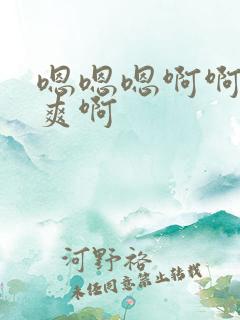 嗯嗯嗯啊啊
爽啊
河野裕
未经同意禁止转载